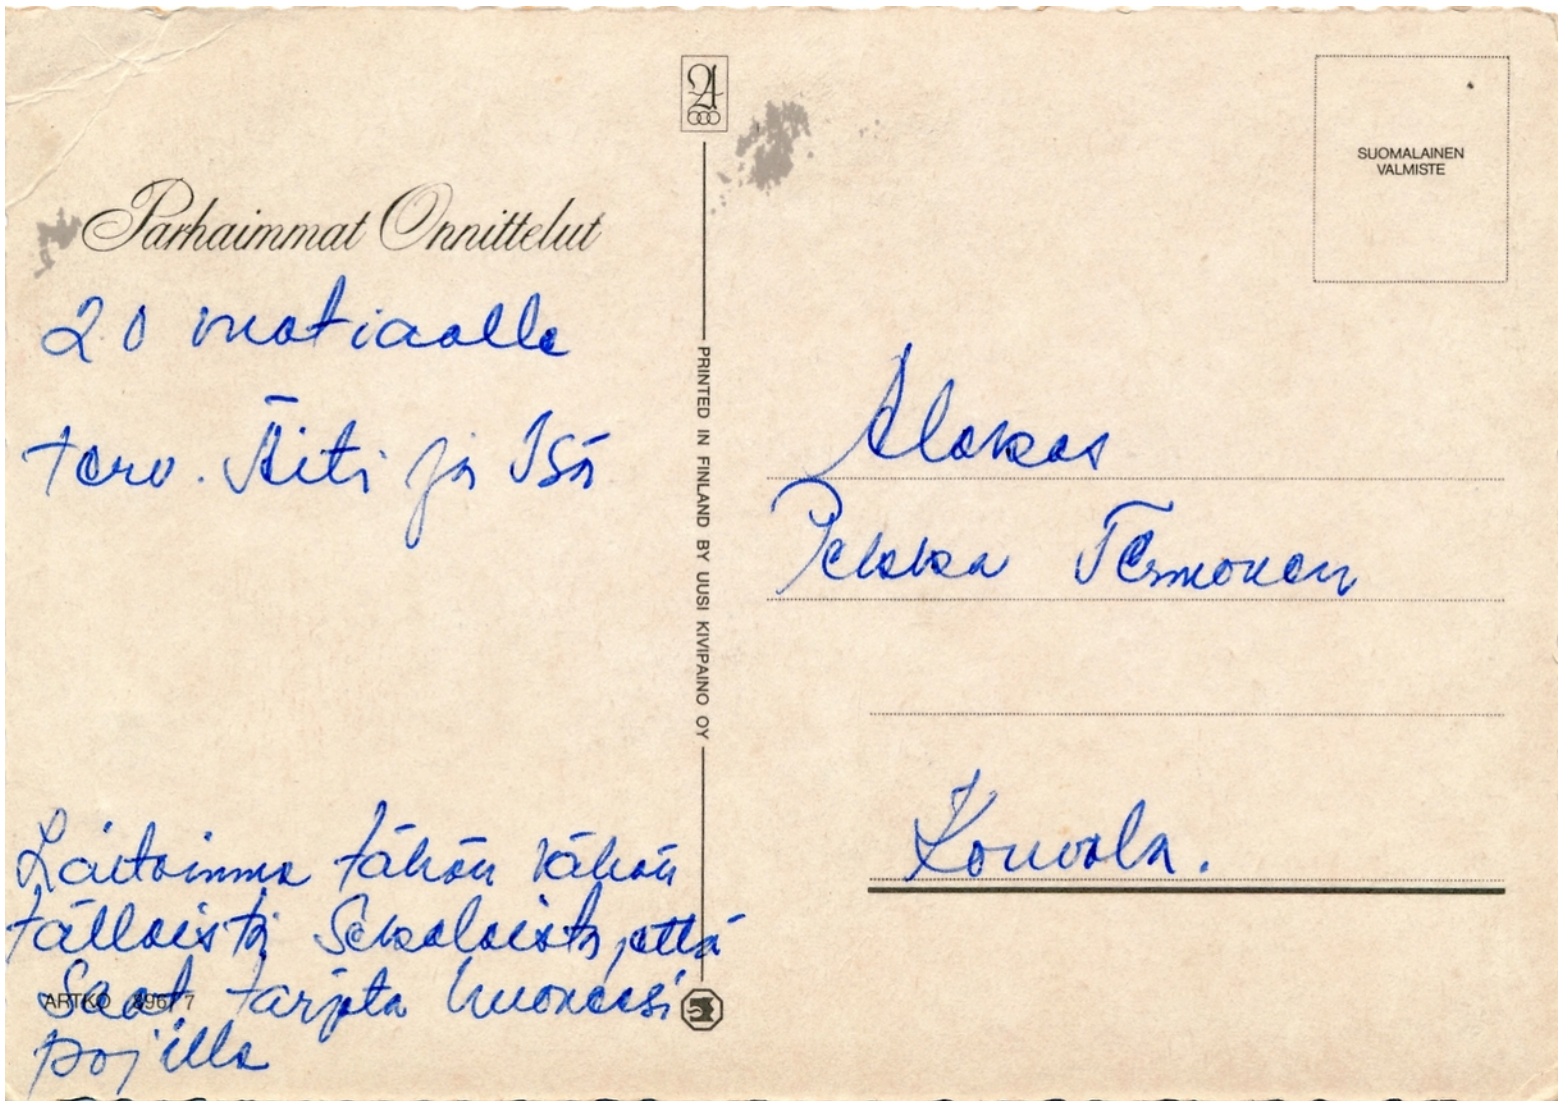 Parhaimmat Onnittelut
20 vuotiaalle
terv. Äiti ja Isä
Laitoimme tähän vähän
tälläistä Sekalaista, että
Saat tarjota huoneesi
pojille
ARTKO 7
PRINTED IN FINLAND BY UUSI KIVIPAINO OY
SUOMALAINEN
VALMISTE
Alokas
Pekka Termonen
Kouvola.